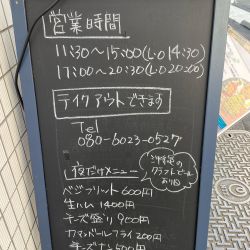 営業時間
11:30～15:00(L.O 14:30)
17:00～20:30(L.O 20:00)
テイクアウトできます
Tel
080-6023-0527
夜だけメニュー
クラフトビール
あり〼
ベジブリトー 600円
生ハム 1400円
チーズ盛り 900円
カマンベールフライ 200円
チーズナン 500円